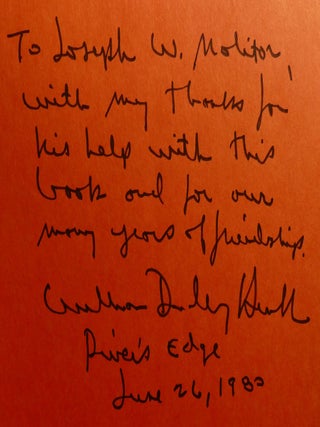 To Joseph W. Molitor,
with my thanks for
his help with this
book and for our
many years of friendship.
River's Edge
June 26, 1983